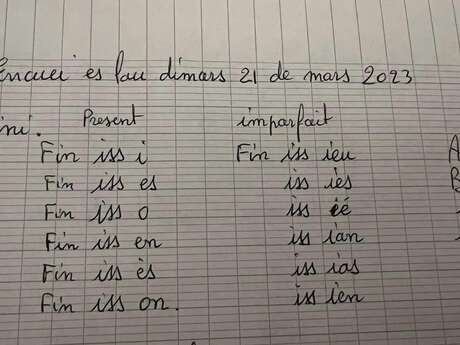 Encuei es lou dimars 21 de mars 2023
ini. Present imparfait
Fin iss i Fin iss ieu A
Fin iss es iss iès B
Fin iss o iss ié
Fin iss en iss ian
Fin iss ès iss ias
Fin iss on. iss ien